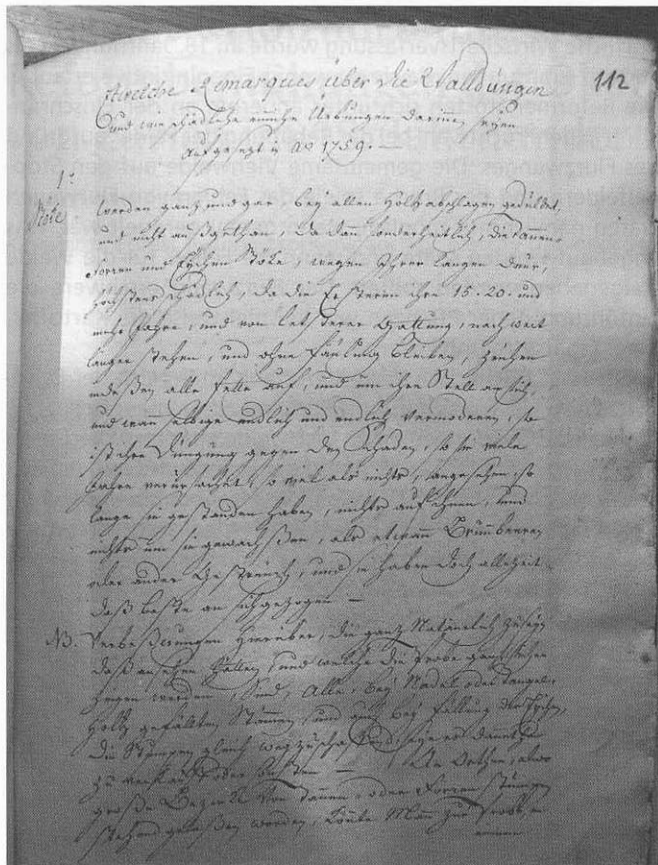 112
Etwelche Remarques über die Walldungen
und wie schädliche einiche Uebungen darinnen seyen
Aufgesezt in Ao 1759. —
1°
Stöke
werden ganz und gar, bey allen Holzabschlagen geduldet,
und nicht außgethan, da dann sonderheitlich, die Tannen
Forren und Eychen Stöke, wegen Ihrer langen Daur,
höchstens schädlich, da die Ersteren ihre 15. 20. und
mehr Jahre, und von letsterer Gattung, noch weit
länger stehen, und ohne Fäulung bleiben, ziehen
indeßen alle fette auf, und um ihre Stell an sich,
und wann selbige endlich und endlich vermoderen, so
ist ihre Düngung gegen den Schaden, so sie viele
Jahre verursachet, so viel als nichts, angesehen so
lange sie gestanden haben, nichts auf ihnen, und
nichts um sie gewachsßen, als etwann Brummbeeren
oder ander Gesträuch, und sie haben doch allezeit
daß beste an sich gezogen —
NB. Verbeßerungen hierüber, die ganz Natürlich zuseyn
daß ansehen hätten, und welche die probe
zeigen werden, Sind, Alle, bey Nadel oder Tangel
Holtz gefällten Stämmen, und auch bey fällung der Eychen,
die Stumpen gleich wegzuschaffen,
zu oder — Orthen, alwo
große Bezirck von Tannen- oder Forren stumpen
stehend gelaßen worden, könte Man zur Prob